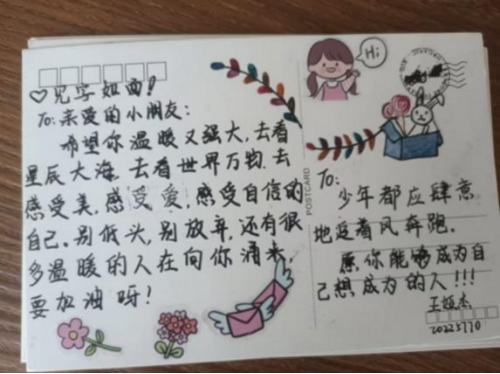 ♡见字如面!
To:亲爱的小朋友:
希望你温暖又强大,去看
星辰大海.去看世界万物.去
感受美,感受爱,感受自信的
自己。别低头,别放弃,还有很
多温暖的人在向你涌来,
要加油呀!
Hi
POSTCARD
To:
少年都应肆意
地迎着风奔跑.
愿你能够成为自
己想成为的人!!!